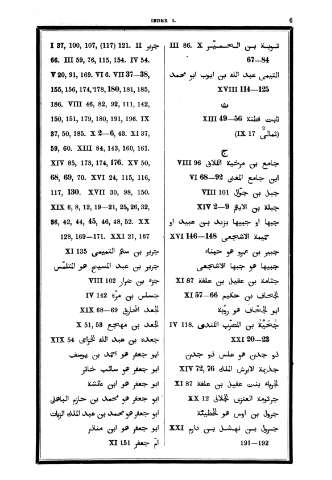 INDEX I. 6
توبة بن الحمير III 86. X
67—84
التيمى عبد الله بن ايوب ابو محمد
XVIII 114—125
ث
ثابت قطنة XIII 49—56
(ثمالى) (IX 17)
ج
جامع بن مرخية الكلابى VIII 96
ابن جامع المغنى VI 68—92
جبل بن جوال VIII 101
جبلة بن الايهم XIV 2—9
جبها او جبيها يزيد بن عبيد او
XVI 146—148 الاشجعى
جبهاء هو جبها الاشجعى
جثامة بن عقيل بن علفة XI 87
الجحاف بن حكيم XI 57—66
ابو الجحاف هو روبة
IV 118.
XXI 20—23
ذو جدن هو علس ذو جدن
جذيمة الابرش الملك XIV 72, 76
الجرباء بنت عقيل بن علفة XI 87
جرثومة العنزى الجلانى XX 12
جرول بن اوس هو الحطيئة
جرول بن نهشل بن دارم XXI
191—192
جرير I 37, 100, 107, (117) 121. II
66. III 59, 76, 115, 154. IV 54.
V 20, 91, 169. VI 6. VII 37—38,
155, 156, 174, 178, 180, 181, 185,
186. VIII 46, 82, 92, 111, 142,
150, 151, 179, 180, 191, 196. IX
37, 50, 185. X 2—6, 43. XI 37,
59, 60. XIII 84, 143, 160, 161.
XIV 85, 173, 174, 176. XV 50,
68, 69, 70. XVI 24, 115, 116,
117, 130. XVII 30, 98, 150.
XIX 6, 8, 12, 19—21, 25, 26, 32,
36, 42, 44, 45, 46, 48, 52. XX
128, 169—171. XXI 21, 167
جرير بن سالم التميمى XI 135
جرير بن عبد المسيح هو المتلمس
جزء بن ضرار VIII 102
جساس بن مرة IV 142
الجعد المحاربى XIX 68—69
الجعد بن مهجع X 51, 53
ابو جعد بن عبد الله الخزاعى XIX 54
ابو جعفر هو احمد بن يوسف
ابو جعفر هو سائب خاثر
ابو جعفر هو ابن عائشة
ابو جعفر هو محمد بن حازم الباهلى
ابو جعفر هو محمد بن عبد الملك الزيات
ابو جعفر هو ابن مناذر
ام جعفر XI 151